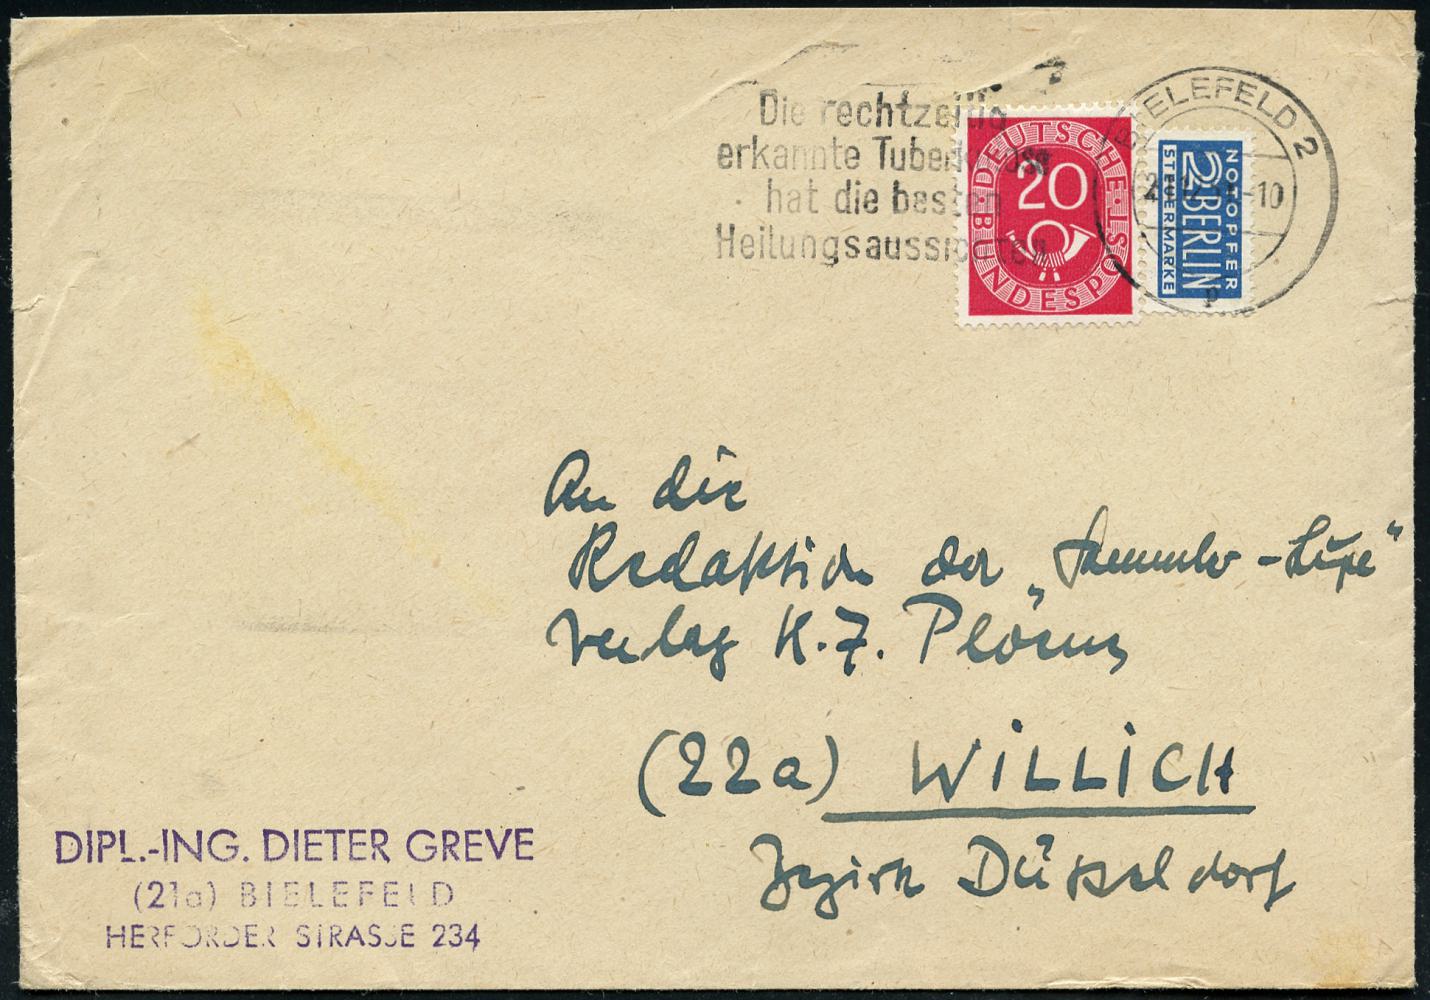 Die rechtzeitig
erkannte Tuberkulose
hat die besten
Heilungsaussichten
DEUTSCHE BUNDESPOST
20
NOTOPFER
2 BERLIN
STEUERMARKE
BIELEFELD 2
-10
p
An die
Redaktion der „Sammler-Lupe"
Verlag K.F. Plörung
(22a) WILLICH
Bezirk Düsseldorf
DIPL.-ING. DIETER GREVE
(21a) BIELEFELD
HERFORDER STRASSE 234